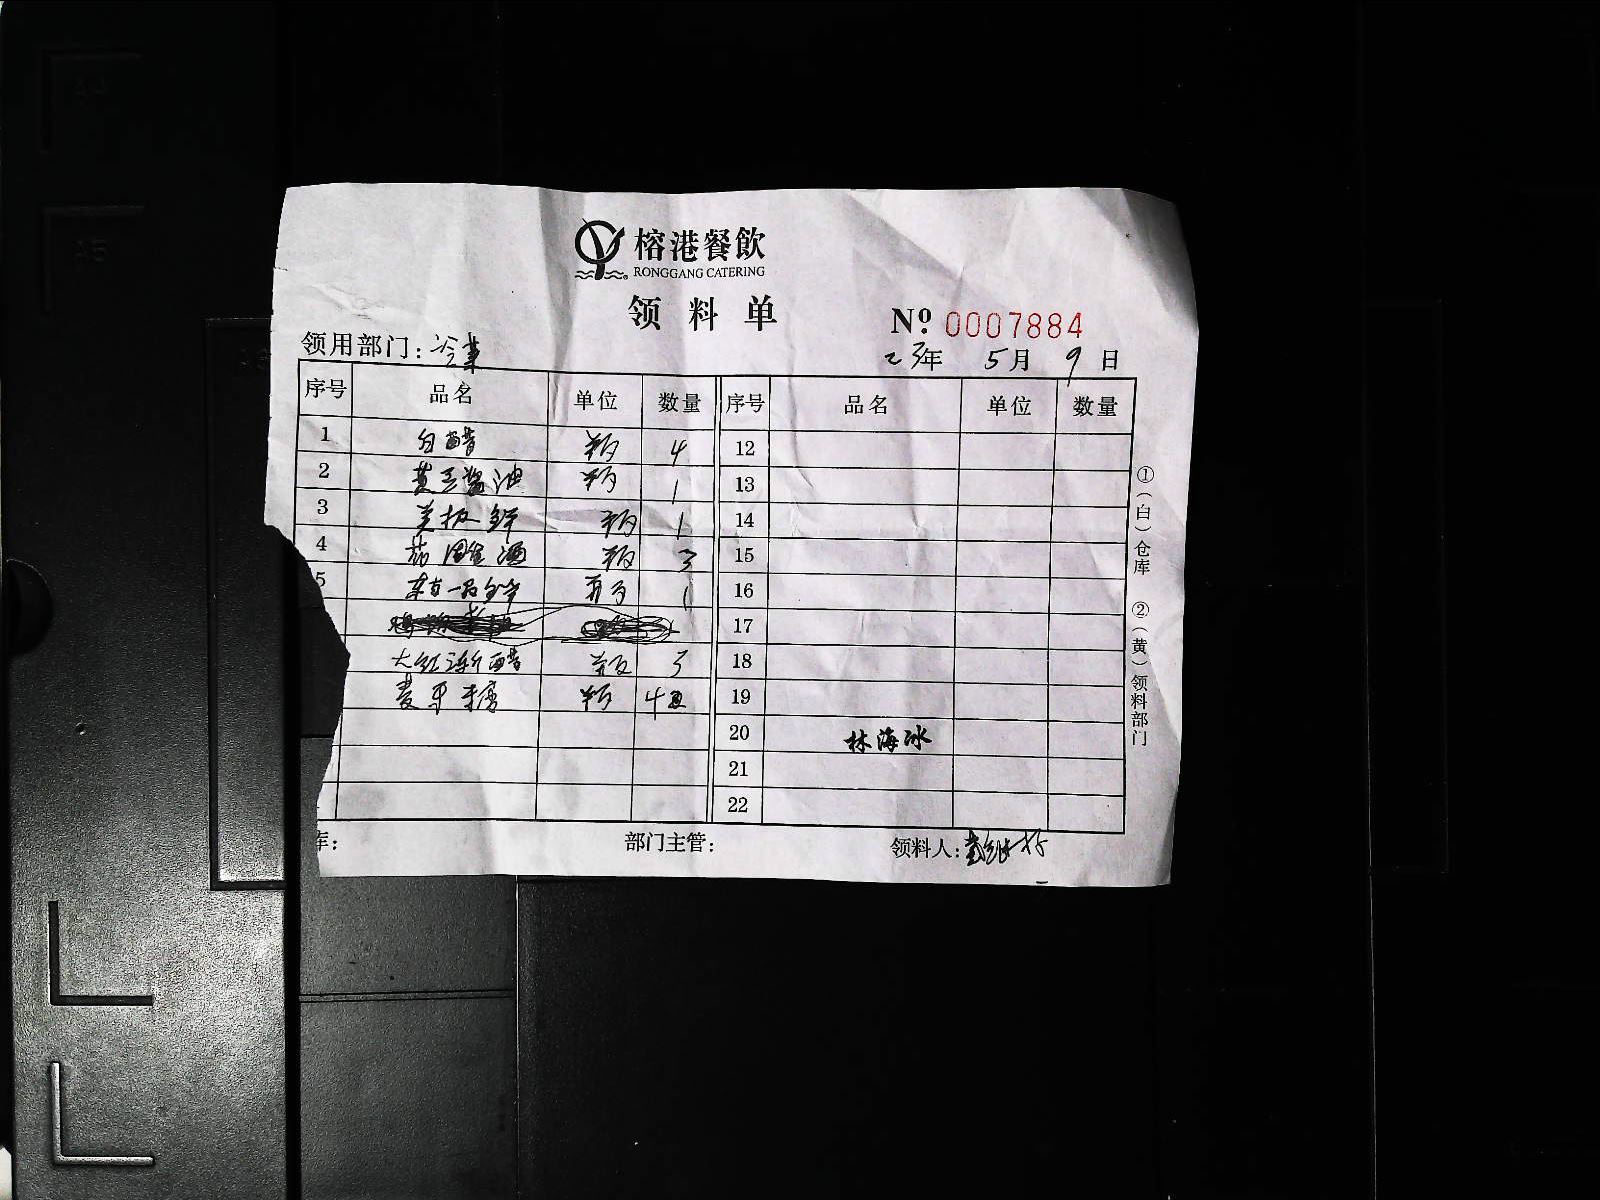 榕港餐飲
RONGGANG CATERING
领料单
№ 0007884
领用部门: 冷菜
23年 5月 9日
序号 品名 单位 数量 序号 品名 单位 数量
1 白醋 瓶 4 12
2 黄豆酱油 瓶 1 13
3 美极鲜 瓶 1 14
4 瓶 3 15
5 东古一品鲜 瓶 1 16
17
大红浙醋 瓶 3 18
麦芽糖 瓶 4 19
20 林海冰
21
22
库: 部门主管: 领料人:
①(白)仓库 ②(黄)领料部门
A4
A5